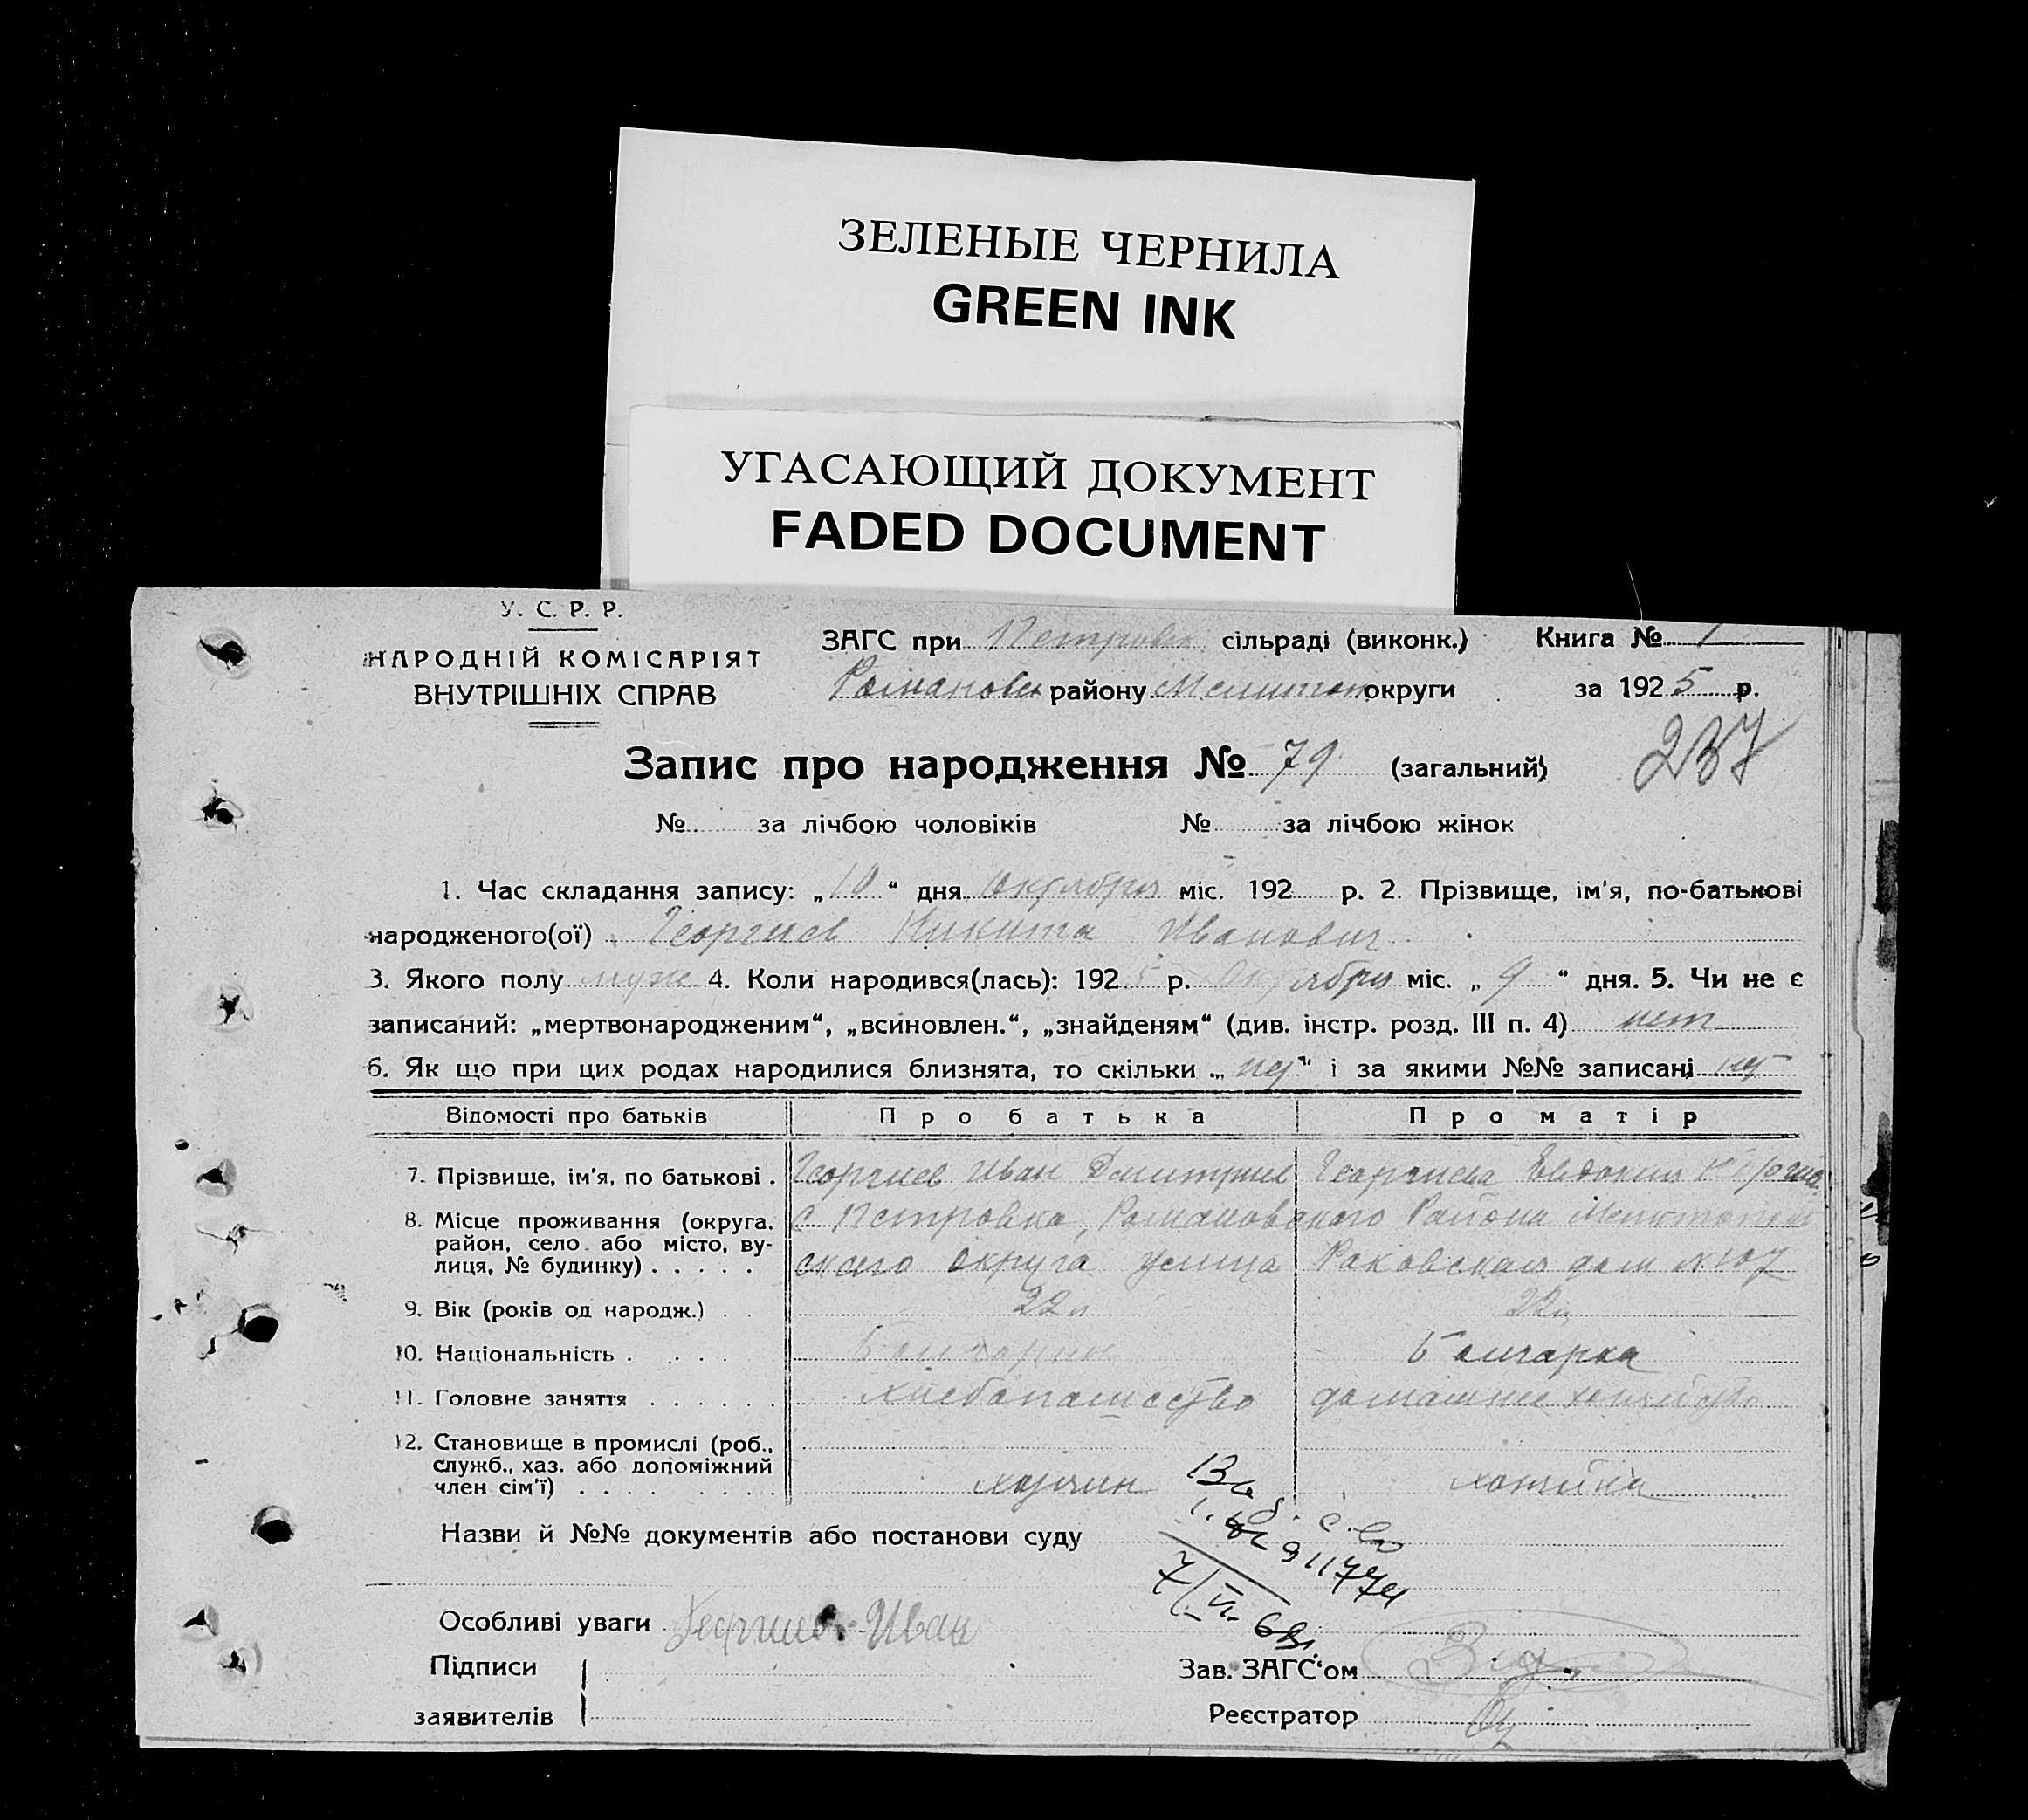 ЗЕЛЕНЫЕ ЧЕРНИЛА
GREEN INK
УГАСАЮЩИЙ ДОКУМЕНТ
FADED DOCUMENT
У. С. Р. Р.
НАРОДНІЙ КОМІСАРІЯТ
ВНУТРІШНІХ СПРАВ
ЗАГС при Петровск сільраді (виконк.) Книга № 1
Романовск району Мелитоп округи за 1925 р.
Запис про народження № 79 (загальний)
237
№ за лічбою чоловіків № за лічбою жінок
1. Час складання запису: „10“ дня Октября міс. 192 р. 2. Прізвище, ім'я, по-батькові
народженого(ої) Георгиев Никита Иванович
3. Якого полу муж 4. Коли народився(лась): 1925 р. Октября міс. „9“ дня. 5. Чи не є
записаний: „мертвонародженим“, „всиновлен.“, „знайденям“ (див. інстр. розд. III п. 4) нет
6. Як що при цих родах народилися близнята, то скільки „нет“ і за якими №№ записані нет
Відомості про батьків Про батька Про матір
7. Прізвище, ім'я, по батькові . Георгиев Иван Дмитриев Георгиева Евдокия
8. Місце проживання (округа, район, село або місто, вулиця, № будинку) . . . . . с Петровка, Романовского Района Мелитопольского округа улица Раковская дом №107
9. Вік (років од народж.) . . 22 л 22 л
10. Національність . . . . Болгарин Болгарка
11. Головне заняття . . . . . . Хлебопашество домашнее хозяйство
12. Становище в промислі (роб., служб., хаз. або допоміжний член сім'ї) . . . . . . . . . хозяин хозяйка
Назви й №№ документів або постанови суду
911774
7/VI
Особливі уваги Георгиев Иван
Підписи
заявителів
Зав. ЗАГС'ом
Реєстратор